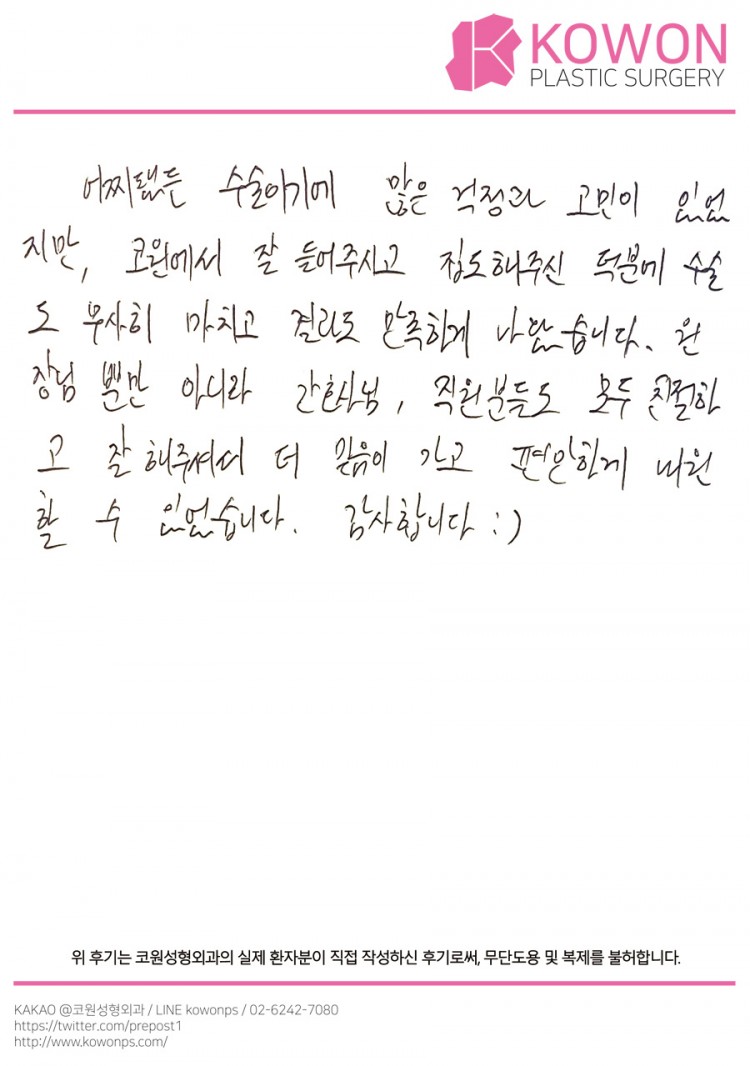 KOWON
PLASTIC SURGERY
어찌됐든 수술이기에 많은 걱정과 고민이 있었
지만, 코원에서 잘 들어주시고 집도해주신 덕분에 수술
도 무사히 마치고 결과도 만족하게 나왔습니다. 원
장님 뿐만 아니라 간호사님, 직원분들도 모두 친절하
고 잘 해주셔서 더 믿음이 가고 편안하게 내원
할 수 있었습니다. 감사합니다 :)
위 후기는 코원성형외과의 실제 환자분이 직접 작성하신 후기로써, 무단도용 및 복제를 불허합니다.
KAKAO @코원성형외과 / LINE kowonps / 02-6242-7080
https://twitter.com/prepost1
http://www.kowonps.com/